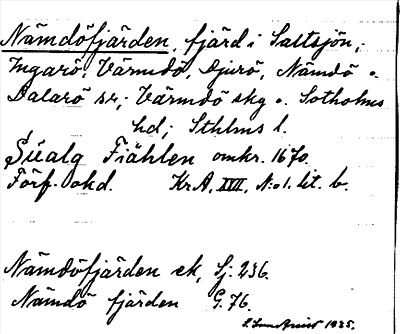 Nämdöfjärden, fjärd i Saltsjön,
Ingarö, Värmdö, Djurö, Nämdö o.
Dalarö snr; Värmdö skg o. Sotholms
hd; Sthlms l.
Fiählen omkr. 1670.
Förf. okd. KrA, XVII, N:o 1. lit. b.
Nämdöfjärden ek, Sj. 236.
Nämdö fjärden G. 76.
1935.